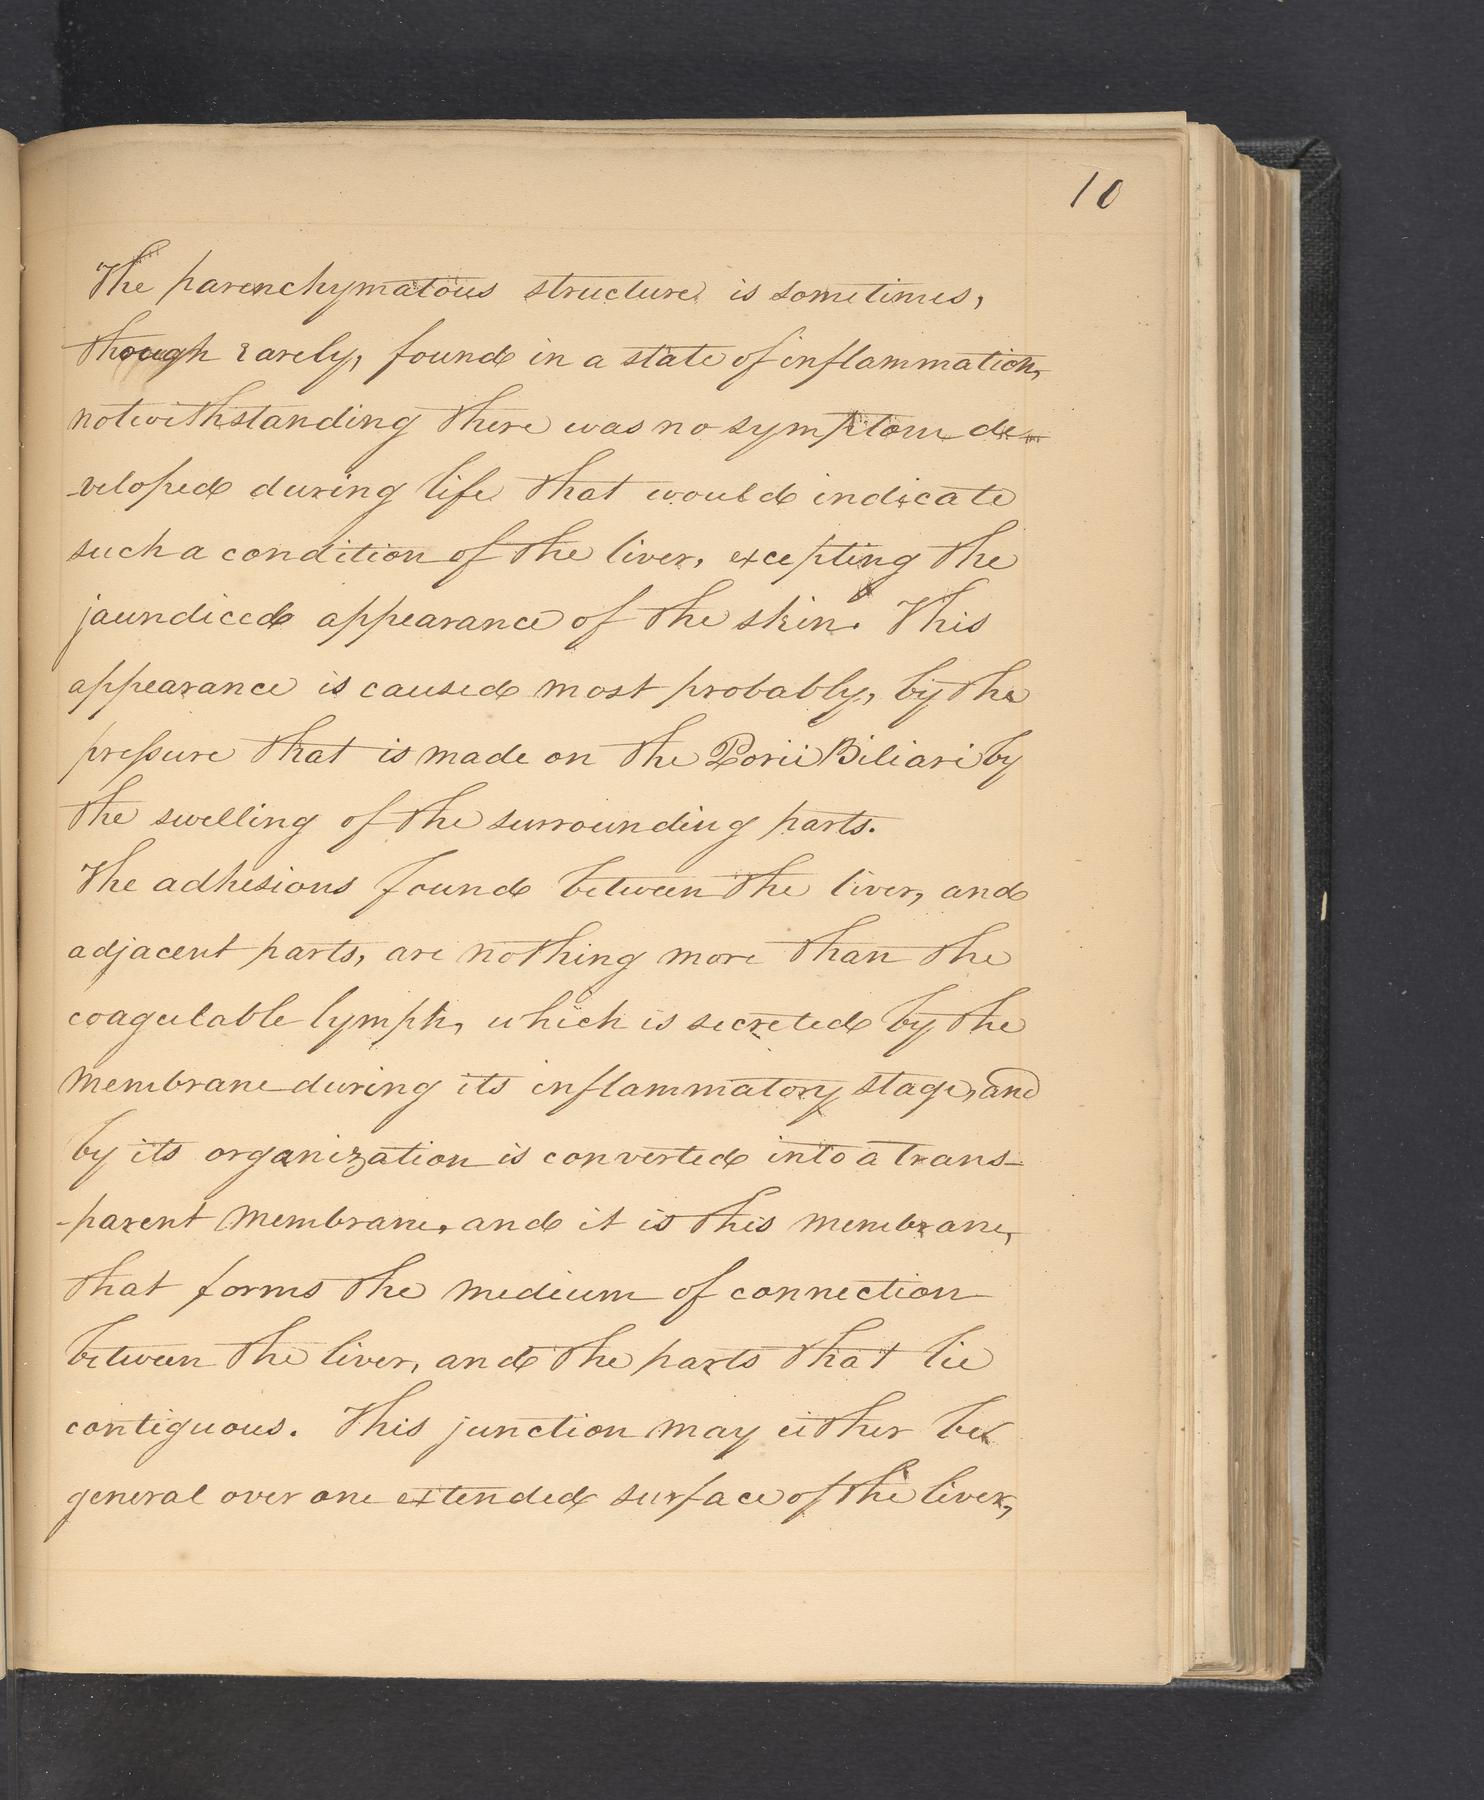 10
The parenchymatous structure is sometimes,
though rarely, found in a state of inflammation,
notwithstanding there was no symptom de-
-veloped during life that would indicate
such a condition of the liver, excepting the
jaundiced appearance of the skin. This
appearance is caused most probably, by the
preſsure that is made on the Porii Biliari by
the swelling of the surrounding parts.
The adhesions found between the liver, and
adjacent parts, are nothing more than the
coagulable lymph, which is secreted by the
membrane during its inflammatory stage, and
by its organization is converted into a trans-
-parent membrane, and it is this membrane,
that forms the medium of connection
between the liver, and the parts that lie
contiguous. This junction may either be
general over one extended surface of the liver,